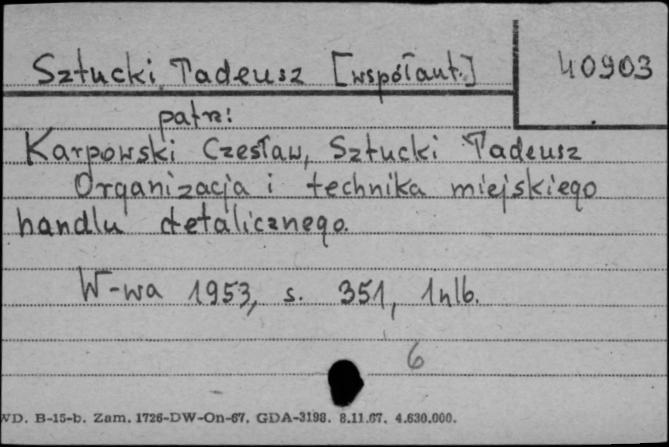 Sztucki Tadeusz [współaut.]
40903
patrz:
Karpowski Czesław, Sztucki Tadeusz
Organizacja i technika miejskiego
handlu detalicznego.
W-wa 1953, s. 351, 1nlb.
6
WD. B-15-b. Zam. 1726-DW-On-67. GDA-3198. 8.11.67. 4.630.000.